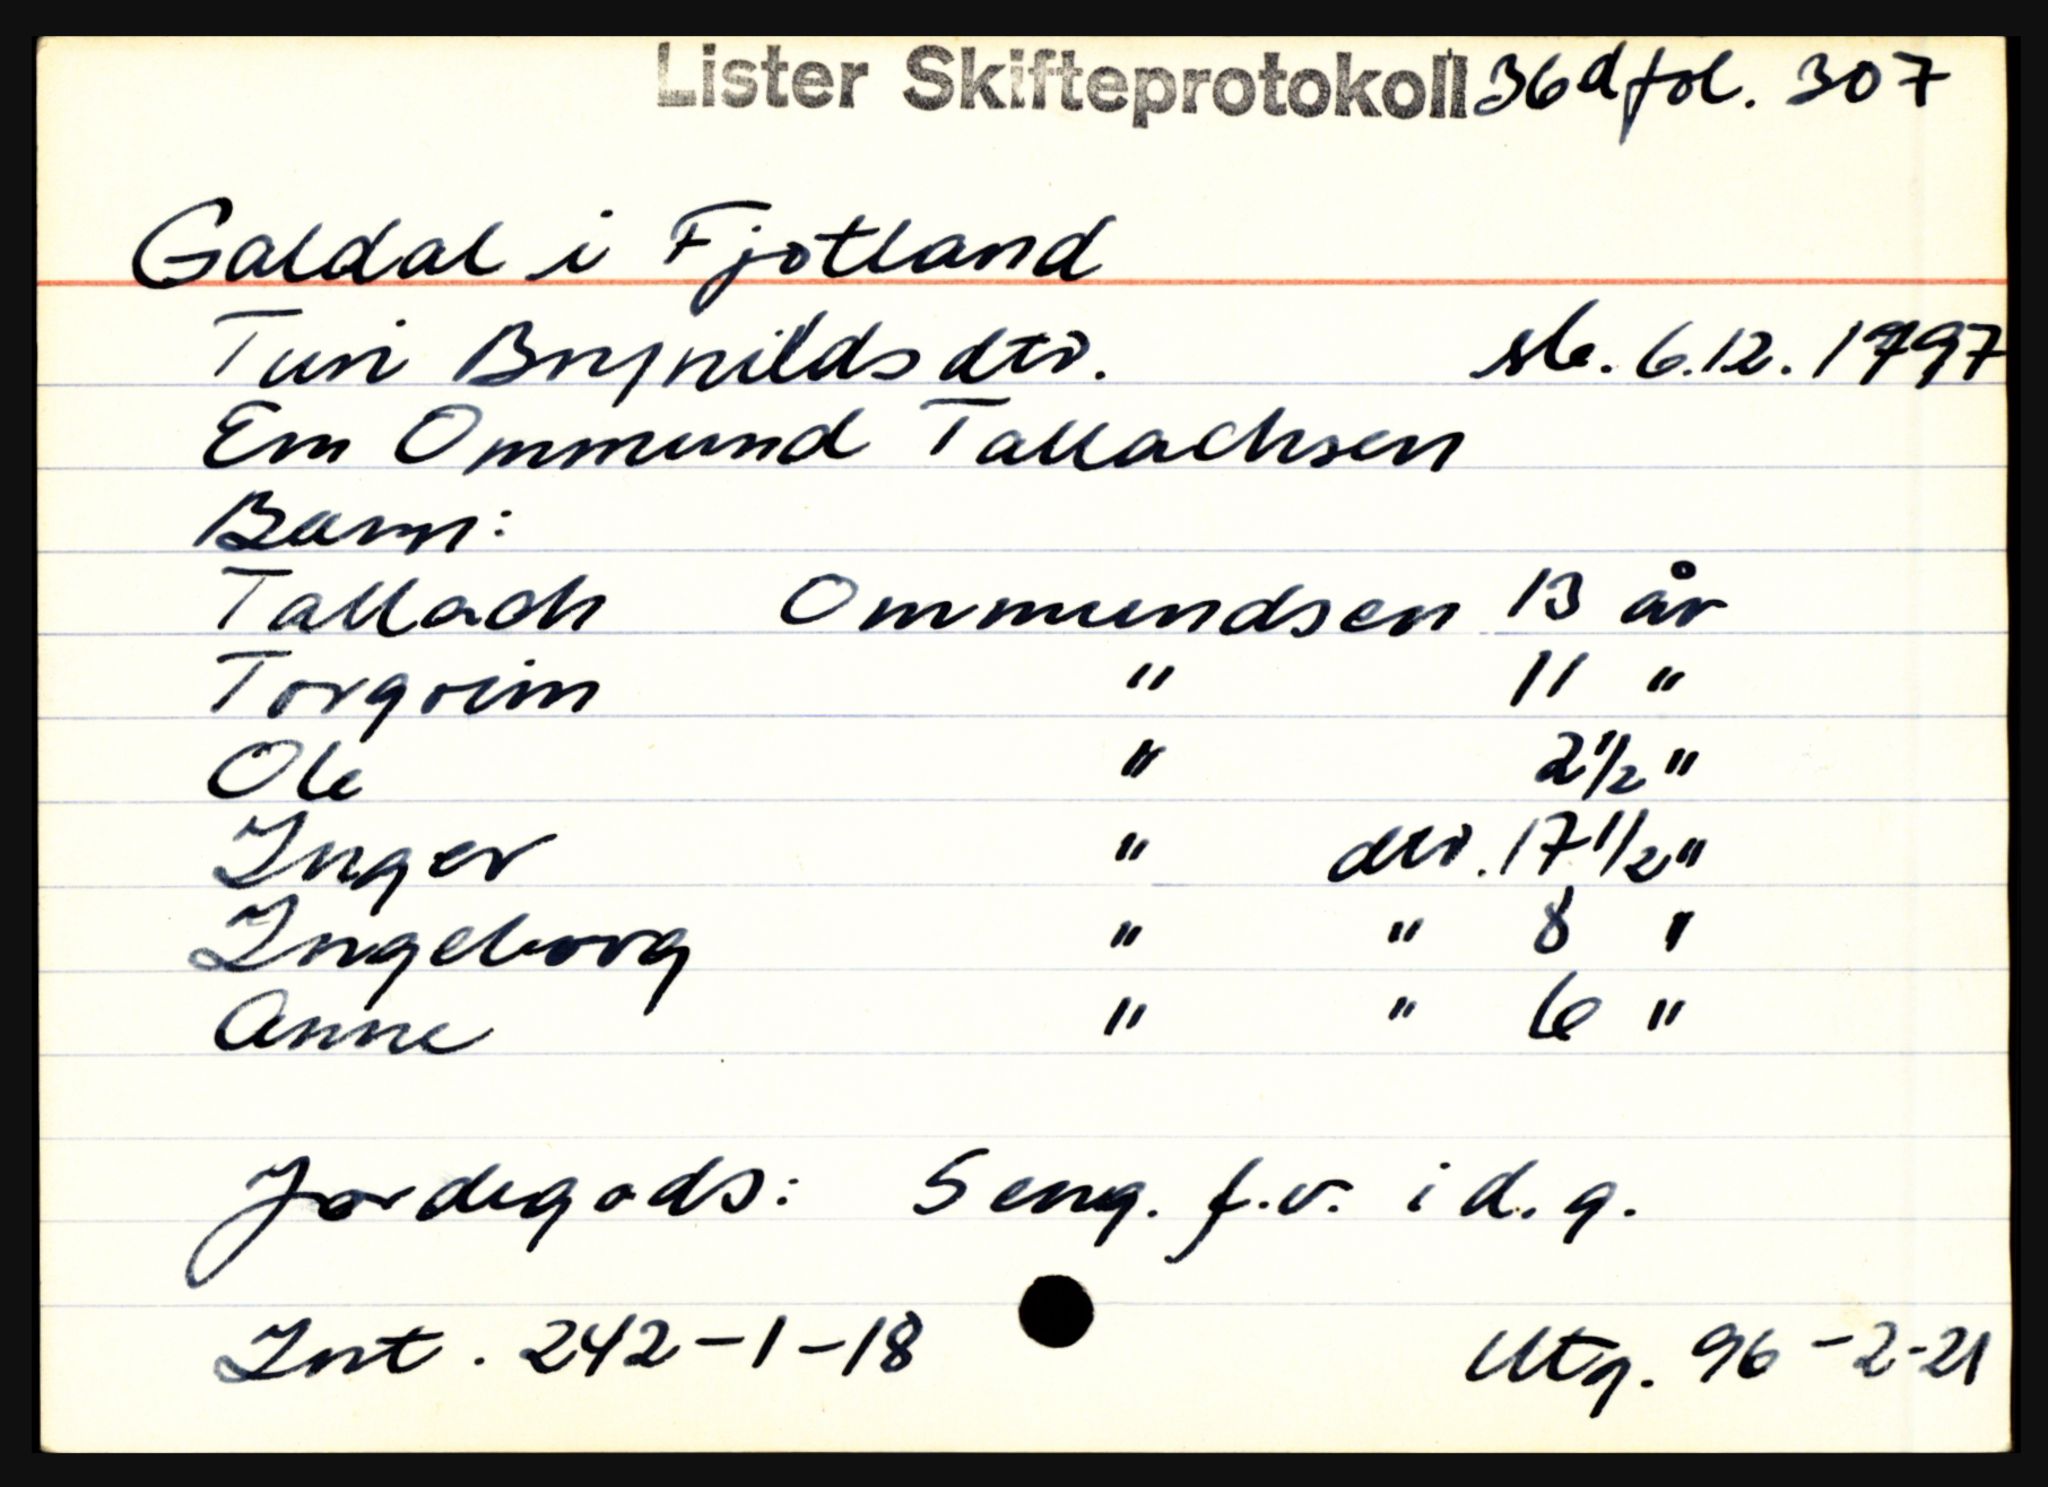 Lister Skifteprotokoll 36d fol. 307
Galdal i Fjotland
Turi Brynildsdtr. sk. 6.12.1797
Em Ommund Tallachsen
Barn:
Tallach Ommundsen 13 år
Torgrim " 11 "
Ole " 2 1/2 "
Inger " dtr. 17 1/2 "
Ingeborg " " 8 "
Anne " " 6 "
Jordegods: 5 eng. f.v. i d. g.
Int. 242-1-18 Utg. 96-2-21